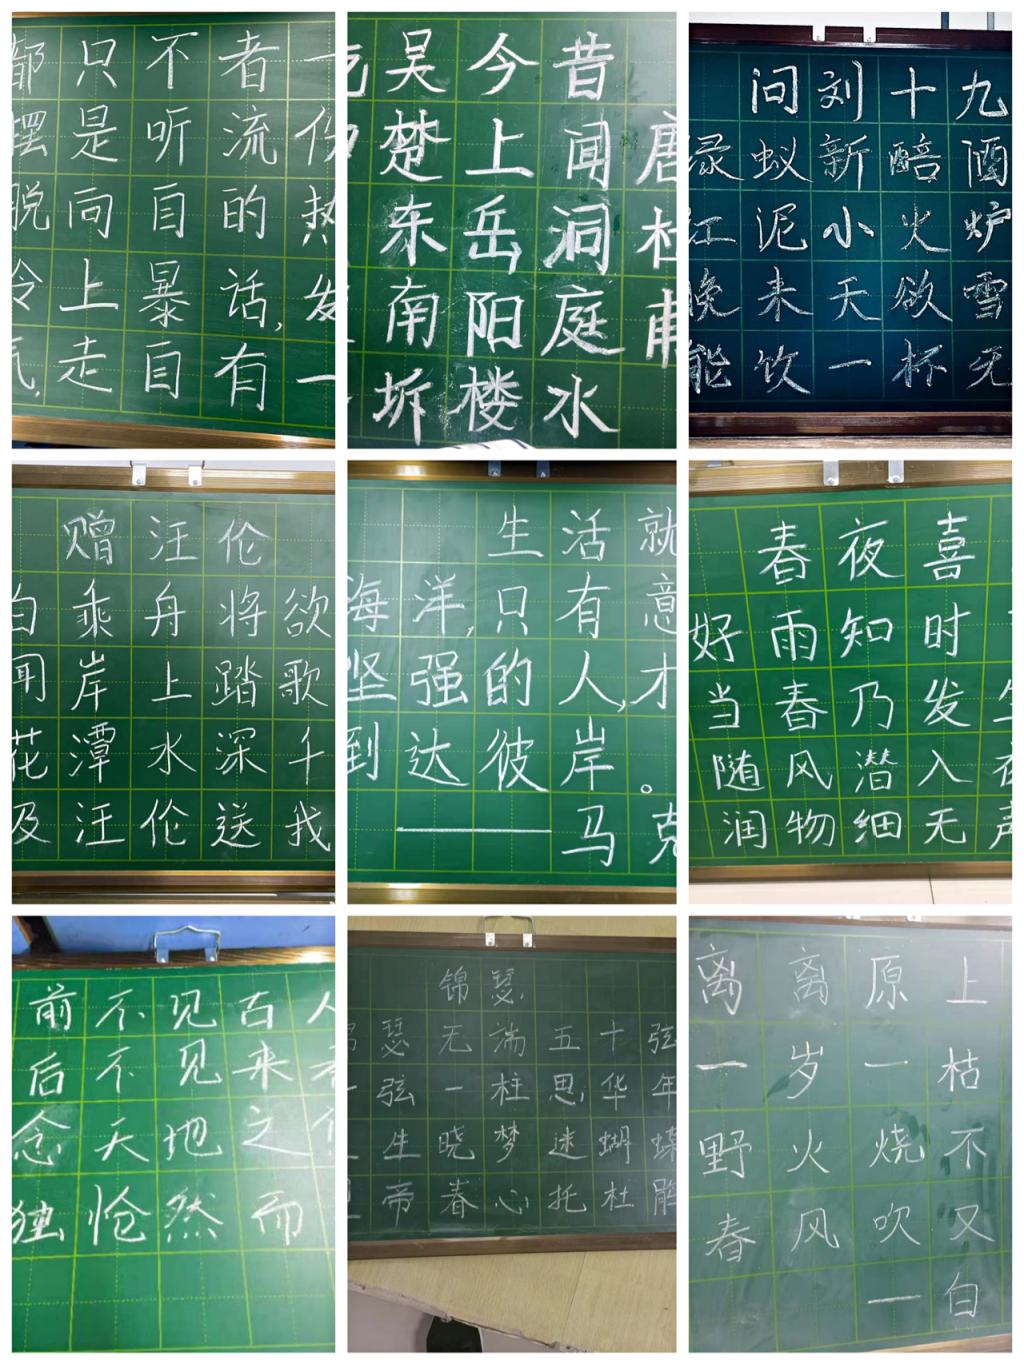 都摆脱冷气,
只是向上走
不听自暴自
者流的话,有
一份热发一
唐杜甫
昔闻洞庭水
今上岳阳楼
吴楚东南坼
问刘十九
绿蚁新醅酒
红泥小火炉
晚来天欲雪
能饮一杯无
赠汪伦
白乘舟将欲
闻岸上踏歌
花潭水深千
及汪伦送我
生活就
海洋,只有意
坚强的人,才
到达彼岸。
——马克
春夜喜
好雨知时
当春乃发生
随风潜入夜
润物细无声
前不见古人
后不见来者
念天地之
独怆然而
锦瑟
瑟无端五十弦
弦一柱思华年
生晓梦迷蝴蝶
帝春心托杜鹃
离离原上
一岁一枯
野火烧不
春风吹又
一白